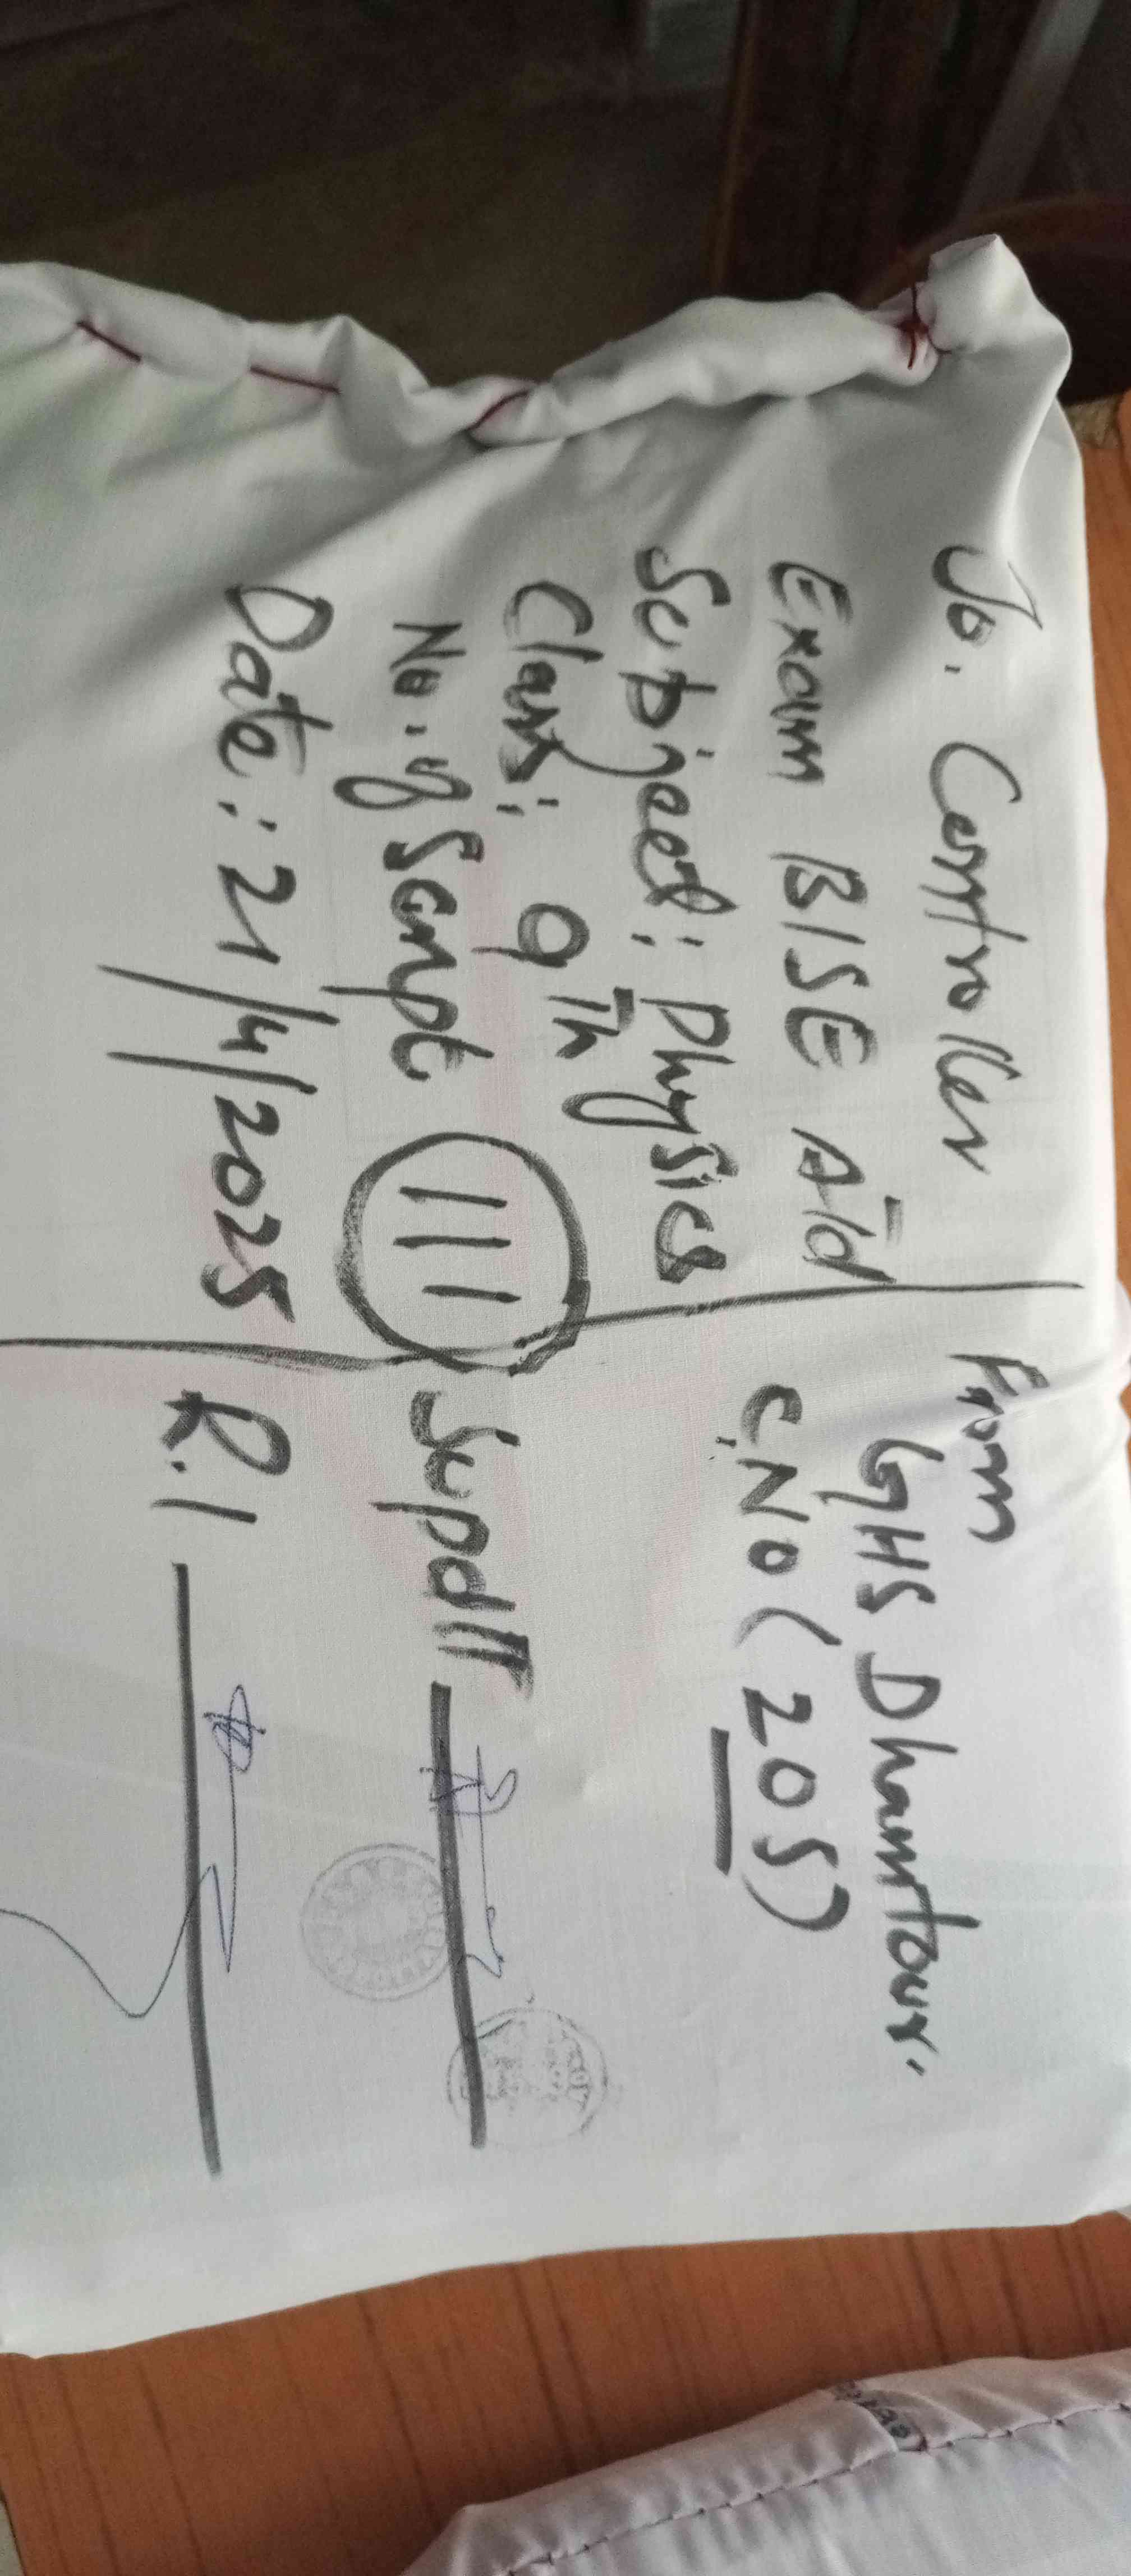 To. Controller
Exam BISE A/d
Subject: Physics
Class: 9th
No. of Script 111
Date: 21/4/2025
From
GHS Dhamtour.
C.No (205)
Supdtt
R.I